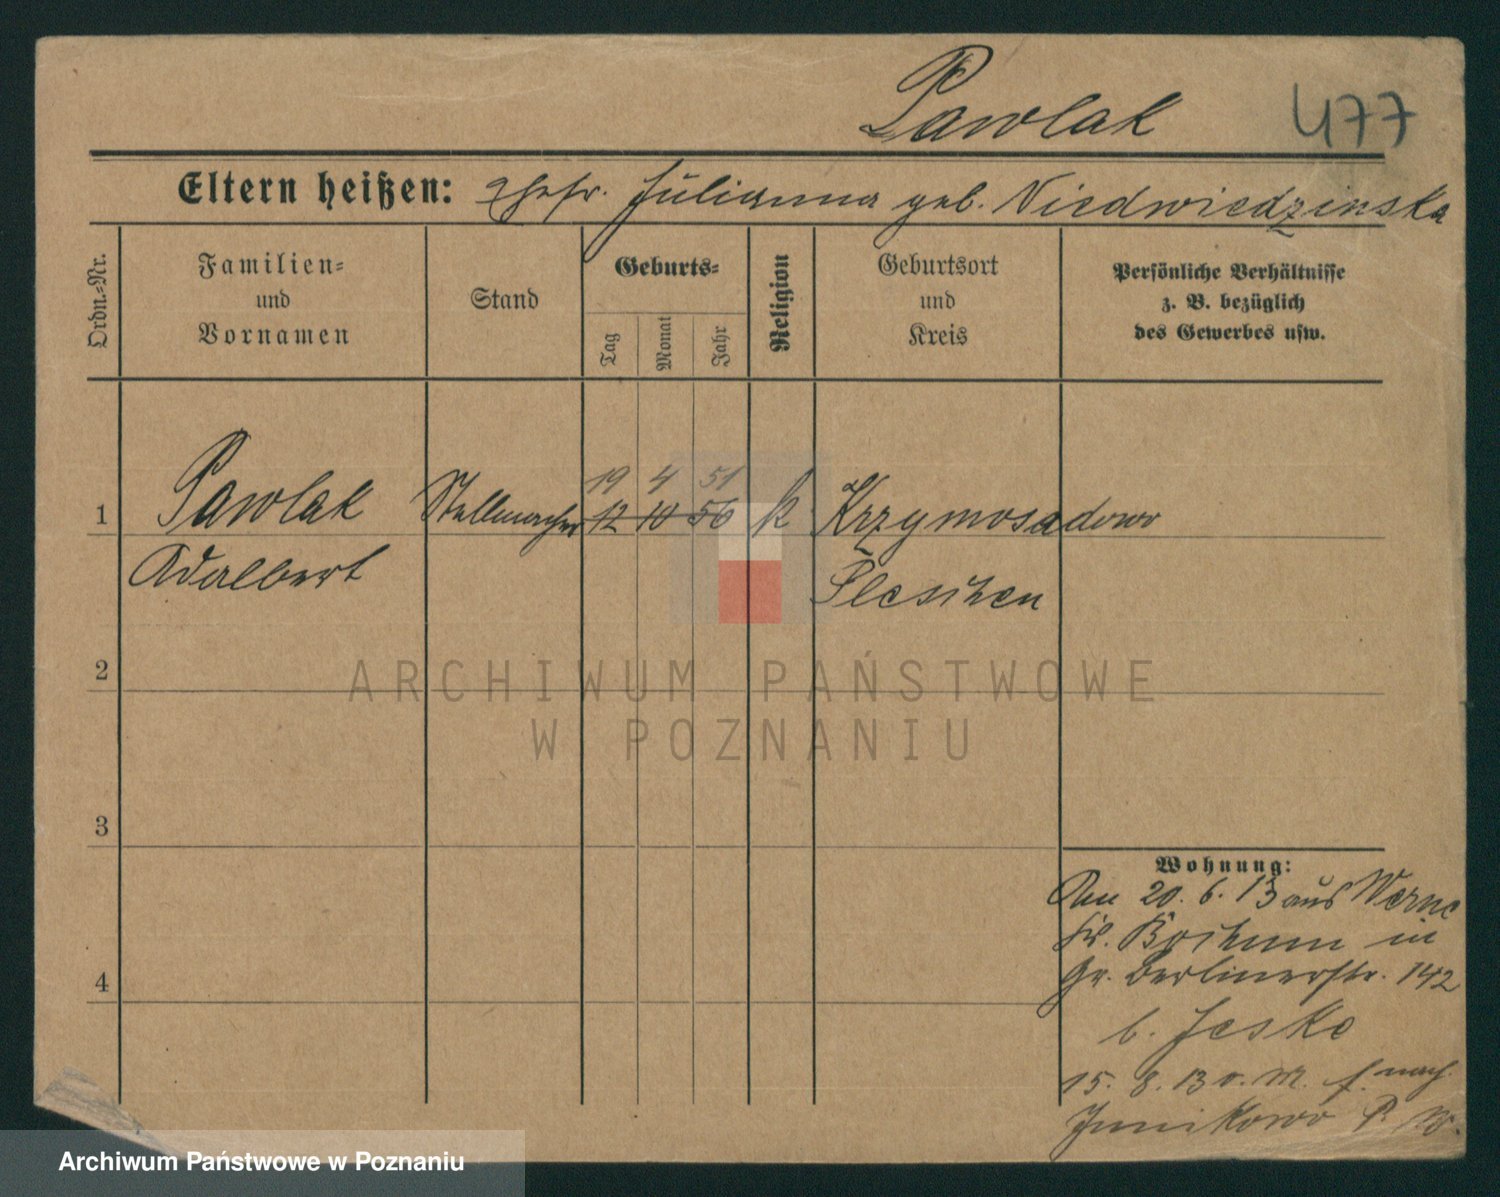 Pawlak
477
Eltern heißen: Ehefr. Julianna geb. Niedwiedzinska
Ordn.-Nr.
Familien-
und
Vornamen
Stand
Geburts-
Tag
Monat
Jahr
Religion
Geburtsort
und
Kreis
Persönliche Verhältnisse
z. B. bezüglich
des Gewerbes usw.
19 4 51
1 Pawlak Stellmacher 12 10 56 k Krzymosadowo
Adalbert Pleschen
2
3
4
Wohnung:
Am 20. 6. 13 aus Werne
Kr. Bochum in
Gr. Berlinerstr. 142
b. Jeske
15. 8. 13 v. M. f. nach
Junikowo P. W.
ARCHIWUM PAŃSTWOWE
W POZNANIU
Archiwum Państwowe w Poznaniu